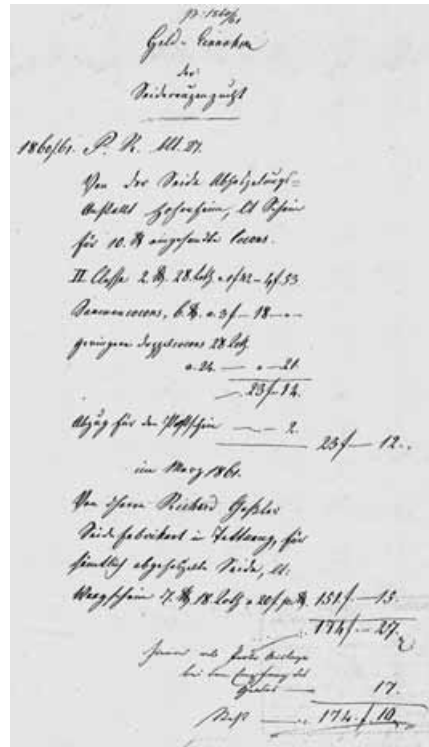 pr. 1860/61
Geld-Einnahme
der
Seidenraupenzucht
1860/61. P. R. All. 27.
Von der Seide Abhaspelungs-
Anstallt Hohenheim, lt Schein
für 10. ℔ eingesandte Cocons.
II. Classe 2. ℔. 28. Loth a 1 f 42 – 4 f. 53
Samencocons, 6. ℔. a. 3 f – 18 –
geringere Doppelcocons 28 Loth
a. 24. — " – 21.
23 f – 14.
Abzug für den Postschein — 2.
23 f — 12.
im Merz 1861.
Von Herrn Richard Geßler
Seidefabrikant in Tettnang, für
sämtlich abgehaspelte Seide, lt.
Waagschein 7. ℔. 18. Loth a 20 f. p. ℔. 151 f. – 15.
174 f. – 27.
Porto Auslage
bei dem Empfang des
Geldes — 17.
Rest — 174. f. 10.